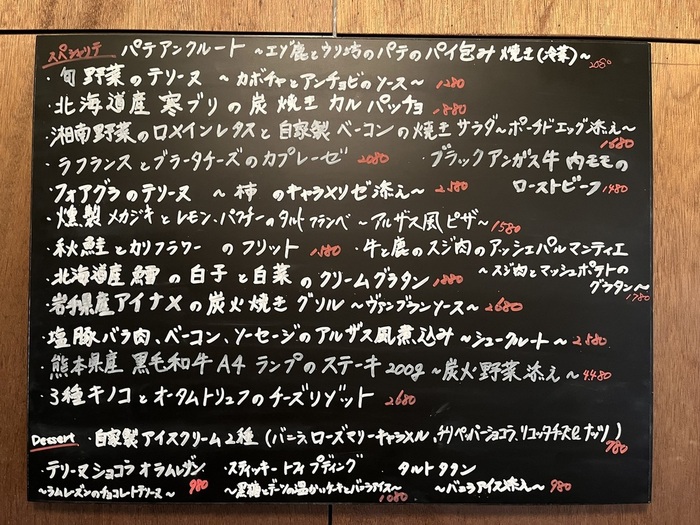 スペシャリテ パテアンクルート ~エゾ鹿とウリ坊のパテのパイ包み焼き(冷菜)~ 2080
・旬野菜のテリーヌ ~カボチャとアンチョビのソース~ 1280
・北海道産 寒ブリの炭焼き カルパッチョ 1880
・湘南野菜のロメインレタスと自家製ベーコンの焼きサラダ~ポーチドエッグ添え~ 1680
・ラフランスとブラータチーズのカプレーゼ 2080 ・ブラックアンガス牛 内モモの
ローストビーフ 1480
・フォアグラのテリーヌ ~柿のキャラメリゼ添え~ 2580
・燻製メカジキとレモン、パクチーのタルトフランベ~アルザス風ピザ~ 1580
・秋鮭とカリフラワーのフリット 1380 ・牛と鹿のスジ肉のアッシェパルマンティエ
~スジ肉とマッシュポテトの
グラタン~ 1780
・北海道産 鱈の白子と白菜のクリームグラタン 1880
・岩手県産アイナメの炭火焼きグリル ~ヴァンブランソース~ 2680
・塩豚バラ肉、ベーコン、ソーセージのアルザス風煮込み ~シュークルート~ 2580
・熊本県産 黒毛和牛A4 ランプのステーキ 200g ~炭火野菜添え~ 4480
・3種キノコとオータムトリュフのチーズリゾット 2680
Dessert ・自家製アイスクリーム2種 (バニラ、ローズマリーキャラメル、チリペッパーショコラ、リコッタチーズ&ナッツ) 780
・テリーヌショコラオラムレザン ・スティッキートフィプディング タルトタタン
~ラムレーズンのチョコレートテリーヌ~ 980 ~黒糖とデーツの温かいケーキとバニラアイス~ 1080 ~バニラアイス添え~ 980